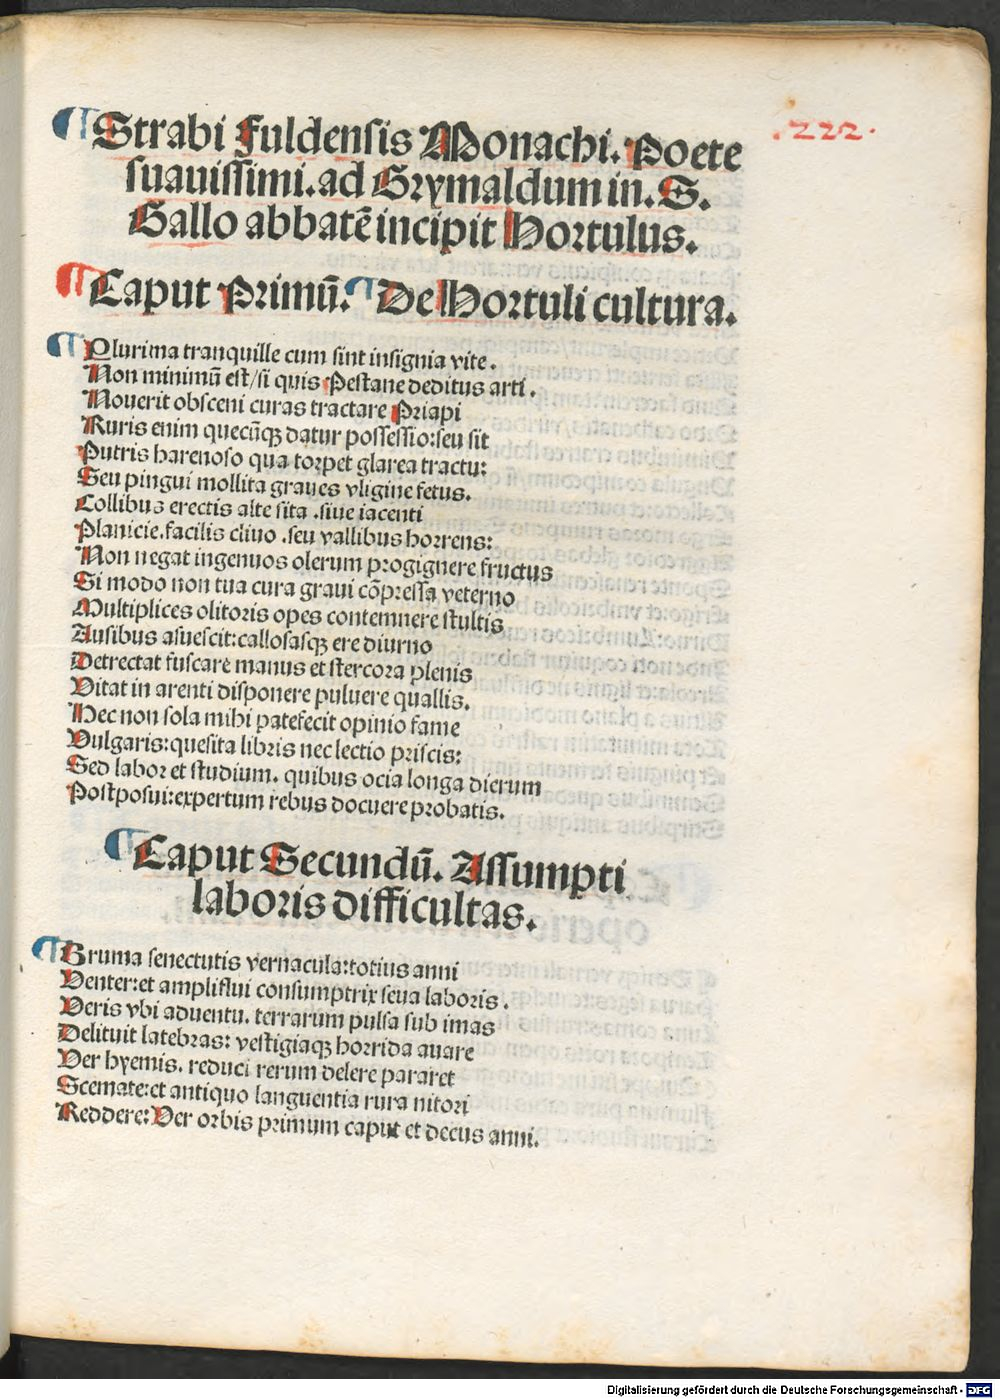 .222.
¶ Strabi Fuldensis Monachi. Poete
suauissimi. ad Grymaldum in. S.
Gallo abbatē incipit Hortulus.
¶ Caput Primū. ¶ De Hortuli cultura.
¶ Plurima tranquille cum sint insignia vite.
Non minimū est/si quis Pestane deditus arti.
Nouerit obsceni curas tractare Priapi
Ruris enim quecūq; datur possessio: seu sit
Putris harenoso qua torpet glarea tractu:
Seu pingui mollita graues vligine fetus.
Collibus erectis alte sita .siue iacenti
Planicie. facilis cliuo .seu vallibus horrens:
Non negat ingenuos olerum progignere fructus
Si modo non tua cura graui cōpressa veterno
Multiplices olitoris opes contemnere stultis
Ausibus asuescit: callosasq; ere diurno
Detrectat fuscare manus et stercora plenis
Vitat in arenti disponere puluere quallis.
Hec non sola mihi patefecit opinio fame
Vulgaris: quesita libris nec lectio priscis:
Sed labor et studium. quibus ocia longa dierum
Postposui: expertum rebus docuere probatis.
¶ Caput Secundū. Assumpti
laboris difficultas.
¶ Bruma senectutis vernacula: totius anni
Venter: et ampliflui consumptrix seua laboris.
Veris vbi aduentu. terrarum pulsa sub imas
Delituit latebras: vestigiaq; horrida auare
Ver hyemis. reduci rerum delere pararet
Scemate: et antiquo languentia rura nitori
Reddere: Ver orbis primum caput et decus anni.
Digitalisierung gefördert durch die Deutsche Forschungsgemeinschaft - DFG